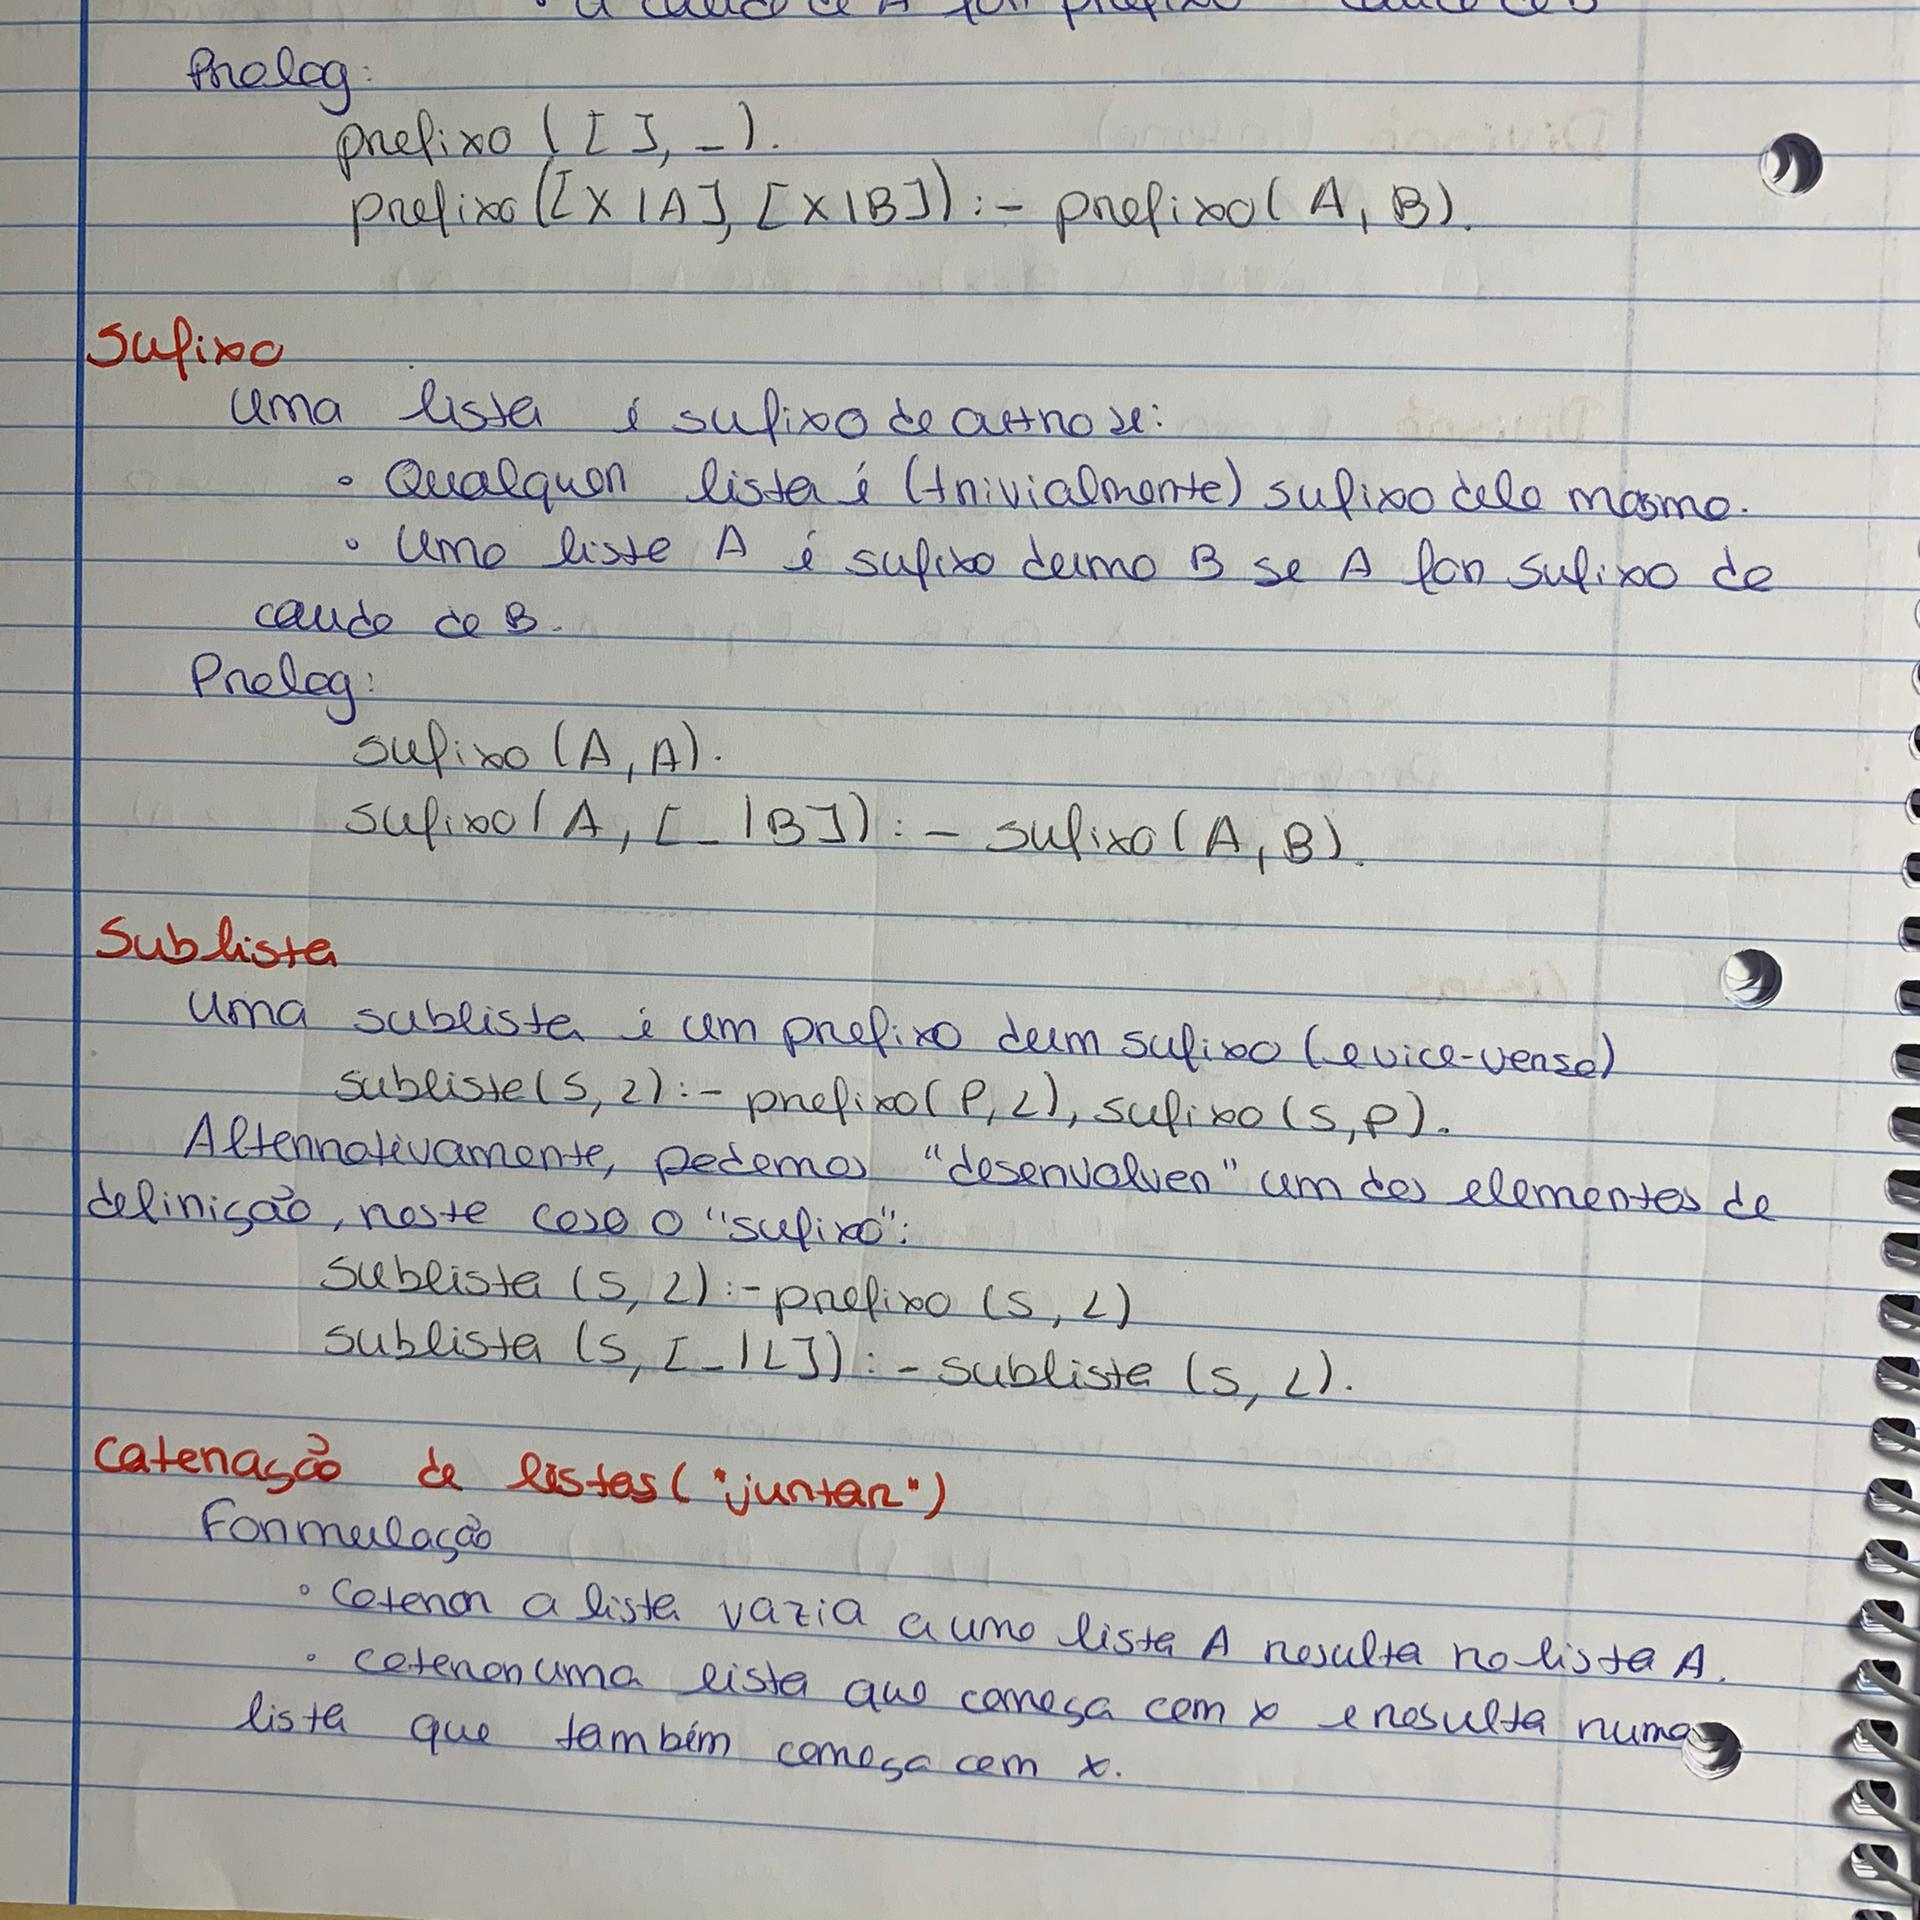 • a cauda de A for prefixo cauda de B
Prolog:
prefixo ([ ], _).
prefixo ([X|A], [X|B]) :- prefixo( A, B).
Sufixo
Uma lista é sufixo de outro se:
• Qualquer lista é (trivialmente) sufixo dela mesma.
• Uma lista A é sufixo duma B se A for sufixo da
cauda de B.
Prolog:
sufixo (A, A).
sufixo( A, [_ |B]) :- sufixo (A, B).
Sublista
Uma sublista é um prefixo dum sufixo (e vice-versa)
sublista (S, L) :- prefixo( P, L), sufixo (S, P).
Alternativamente, podemos "desenvolver" um dos elementos da
definição, neste caso o "sufixo":
sublista (S, L) :- prefixo (S, L)
sublista (S, [_|L]) :- sublista (S, L).
Catenação de listas ("juntar")
Formulação
• Catenar a lista vazia a uma lista A resulta na lista A.
• catenar uma lista que começa com x e resulta numa
lista que também começa com x.